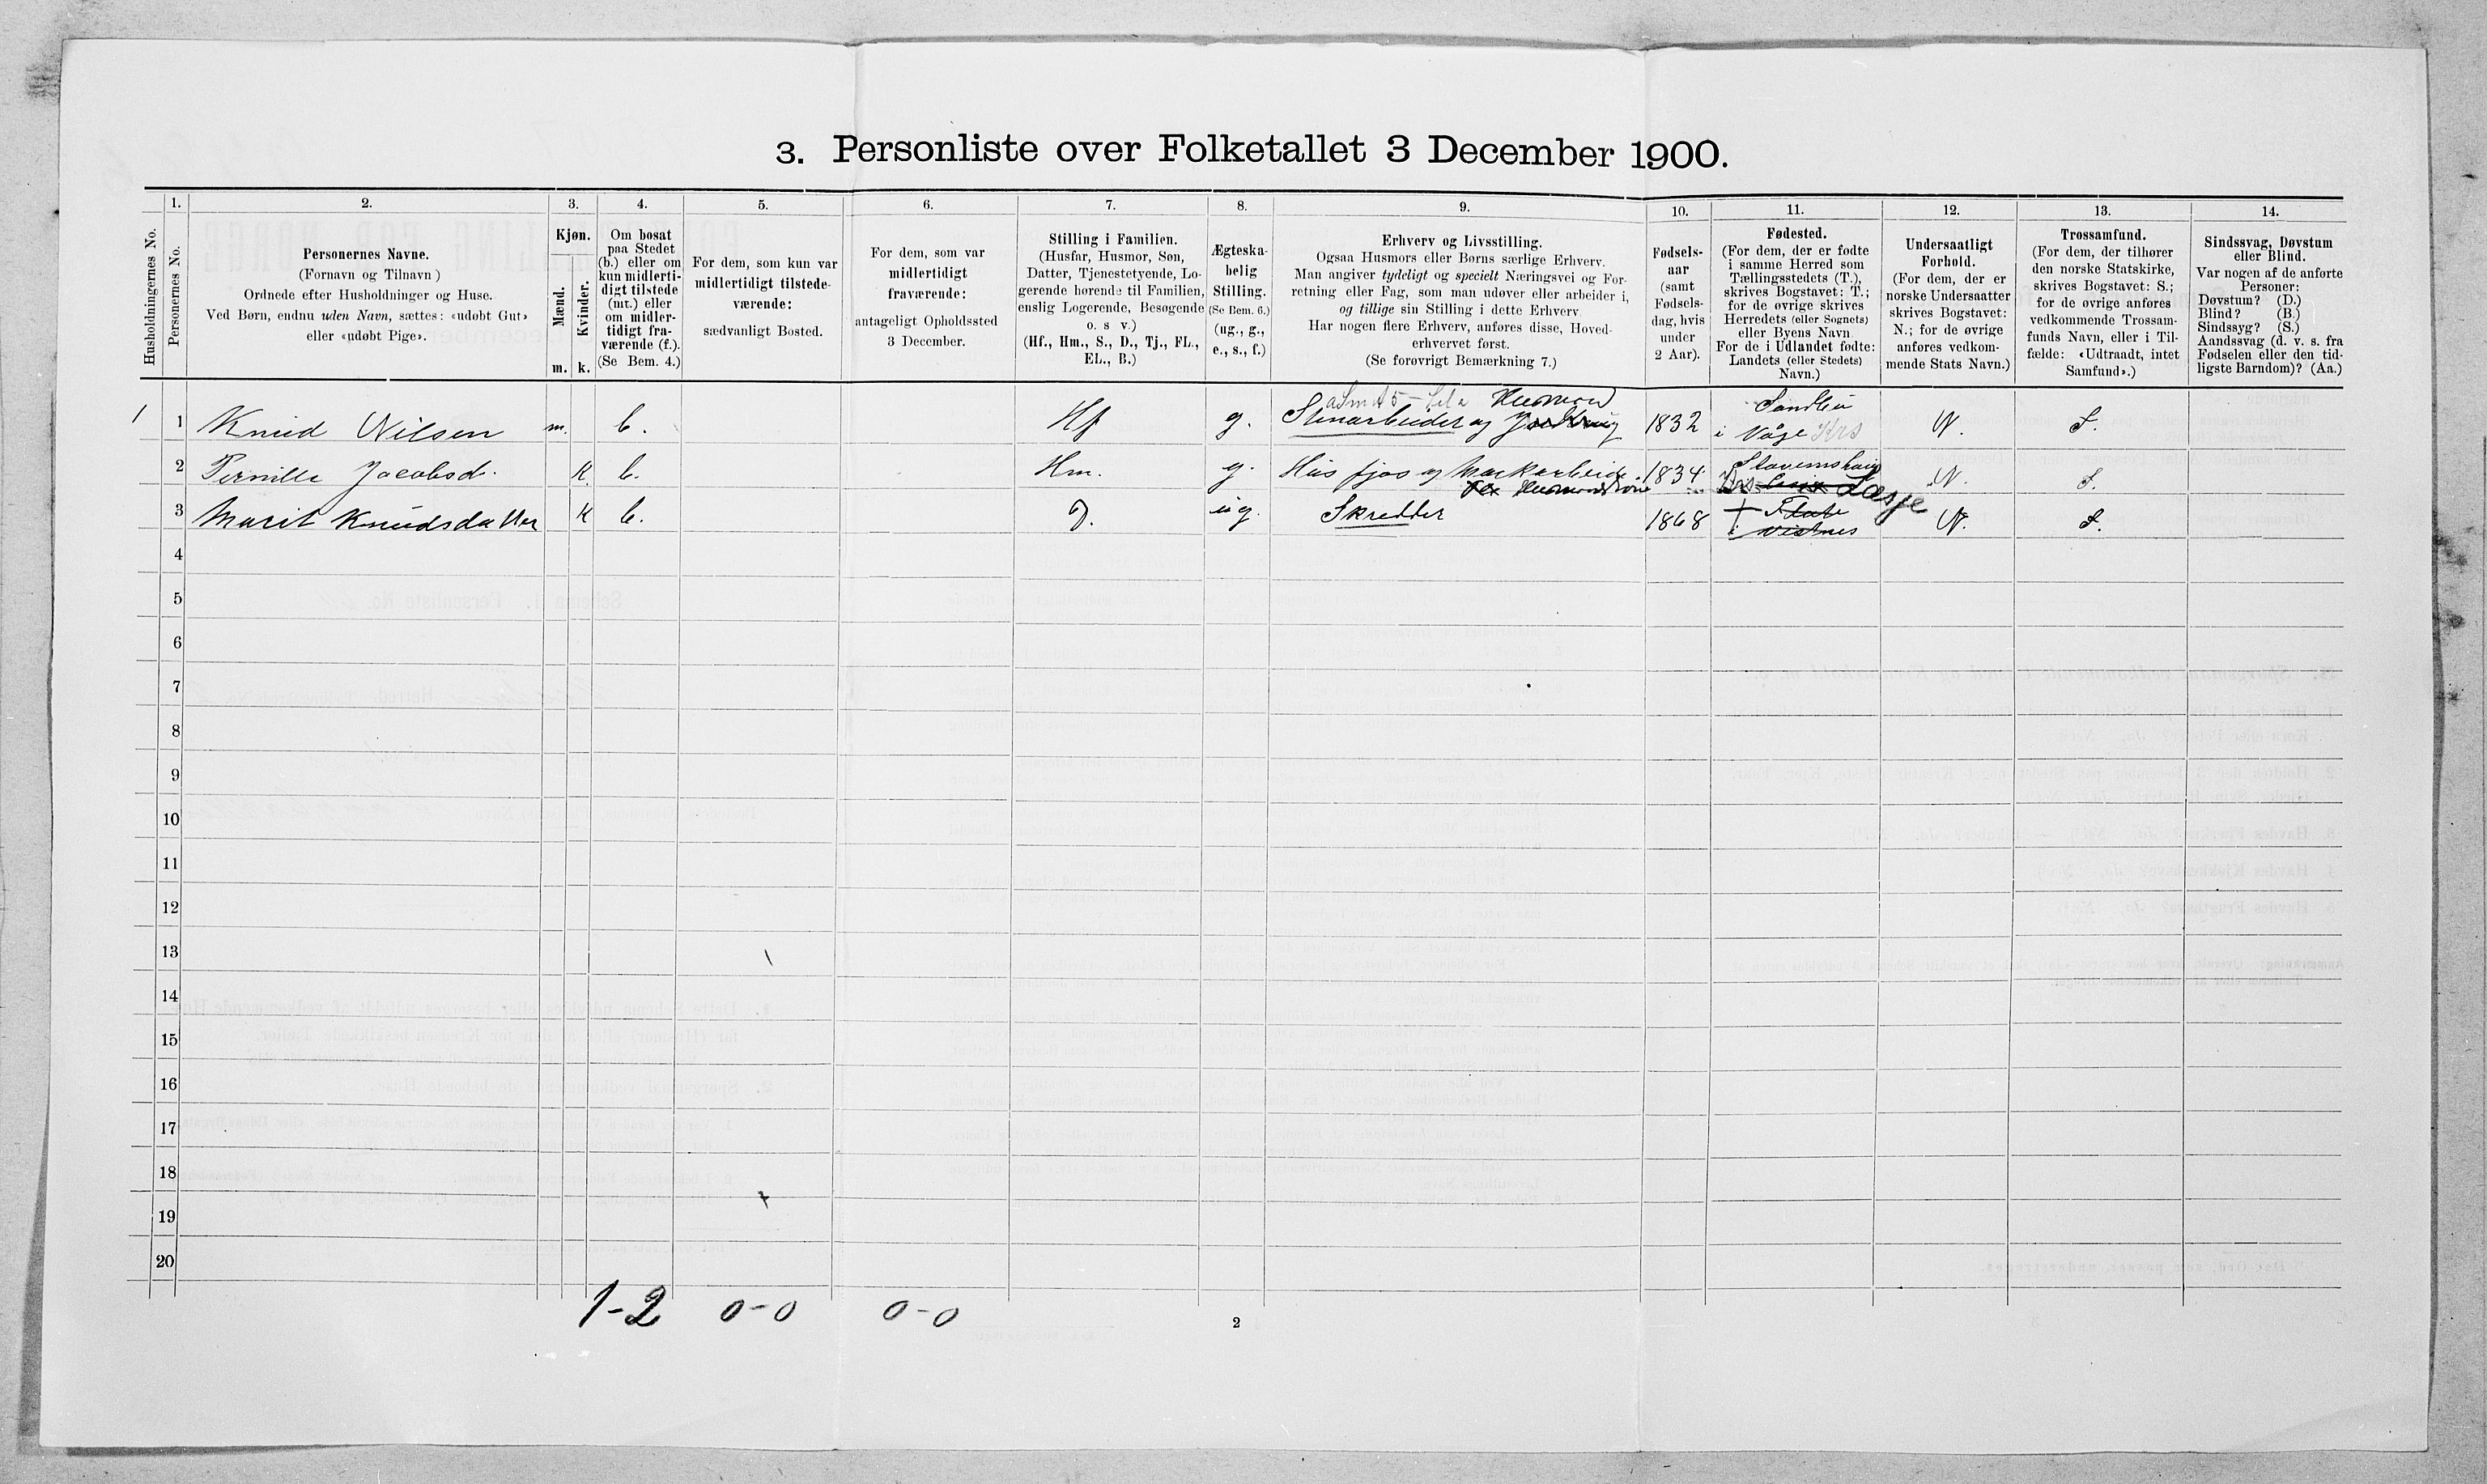 3. Personliste over Folketallet 3 December 1900.
Husholdningernes No.
1.
Personernes No.
2.
Personernes Navne.
(Fornavn og Tilnavn )
Ordnede efter Husholdninger og Huse.
Ved Børn, endnu uden Navn, sættes: «udøbt Gut»
eller «udøbt Pige».
3.
Kjøn.
Mænd.
Kvinder.
m. k.
4.
Om bosat
paa Stedet
(b.) eller om
kun midlerti-
digt tilstede
(mt.) eller
om midler-
tidigt fra-
værende (f.).
(Se Bem. 4.)
5.
For dem, som kun var
midlertidigt tilstede-
værende:
sædvanligt Bosted.
6.
For dem, som var
midlertidigt
fraværende:
antageligt Opholdssted
3 December.
7.
Stilling i Familien.
(Husfar, Husmor, Søn,
Datter, Tjenestetyende, Lo-
gerende hørende til Familien,
enslig Logerende, Besøgende
o. s v.)
(Hf., Hm., S., D., Tj., FL.,
EL., B.)
8.
Ægteska-
belig
Stilling.
(Se Bem. 6.)
(ug., g.,
e., s., f.)
9.
Erhverv og Livsstilling.
Ogsaa Husmors eller Børns særlige Erhverv.
Man angiver tydeligt og specielt Næringsvei og For-
retning eller Fag, som man udøver eller arbeider i,
og tillige sin Stilling i dette Erhverv.
Har nogen flere Erhverv, anføres disse, Hoved-
erhvervet først.
(Se forøvrigt Bemærkning 7.)
10.
Fødsels-
aar
(samt
Fødsels-
dag, hvis
under
2 Aar).
11.
Fødested.
(For dem, der er fødte
i samme Herred som
Tællingsstedets (T.),
skrives Bogstavet: T.;
for de øvrige skrives
Herredets (eller Sognets)
eller Byens Navn
For de i Udlandet fødte:
Landets (eller Stedets)
Navn.)
12.
Undersaatligt
Forhold.
(For dem, der er
norske Undersaatter
skrives Bogstavet:
N.; for de øvrige
anføres vedkom-
mende Stats Navn.)
13.
Trossamfund.
(For dem, der tilhører
den norske Statskirke,
skrives Bogstavet: S.;
for de øvrige anføres
vedkommende Trossam-
funds Navn, eller i Til-
fælde: «Udtraadt, intet
Samfund».)
14.
Sindssvag, Døvstum
eller Blind.
Var nogen af de anførte
Personer:
Døvstum? (D.)
Blind? (B.)
Sindssyg? (S.)
Aandssvag (d. v. s. fra
Fødselen eller den tid-
ligste Barndom)? (Aa.)
Husmand
1 1 Knud Nilsen m. b. Hf g. Stenarbeider og 1832 i Våge Krs N. S.
2 Pernille Jacobsd. K. b. Hm. g. Hus fjos og Markarbeide 1834 Lesje N. S.
3 Marit Knudsdatter K b. D. ug. Skredder 1868 N. S.
4
5
6
7
8
9
10
11
12
13
14
15
16
17
18
19
20
1-2 0-0 0-0
2